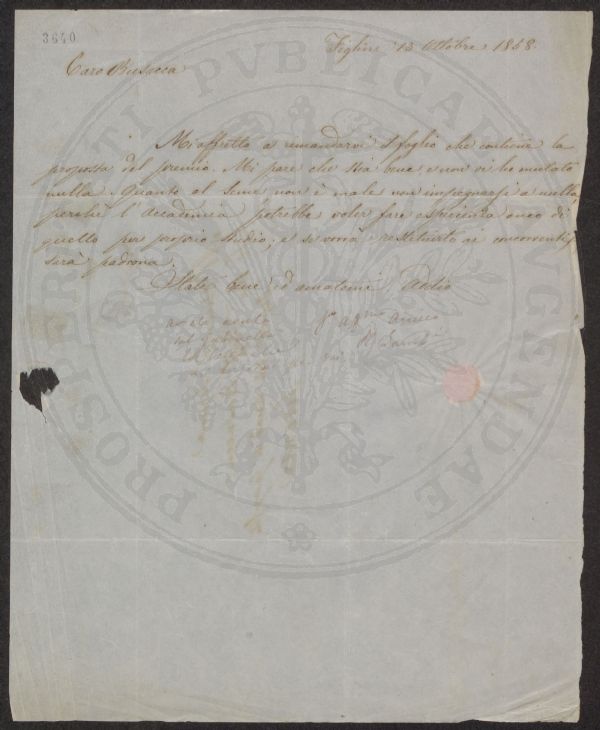 3640
Figline 13 Ottobre 1858.
Caro Busacca
Mi affretto a rimandarvi il foglio che contiene la
proposta del premio. Mi pare che stia bene e non vi ho mutato
nulla. Quanto al seme non è male non impegnarsi a nulla,
perchè l'Accademia potrebbe voler fare esperienza anco di
quello per proprio studio, e se vorrà restituirlo ai concorrenti
sarà padrona.
State bene ed amatemi. Addio
amico
PROSPERITATI PVBLICAE AVGENDAE